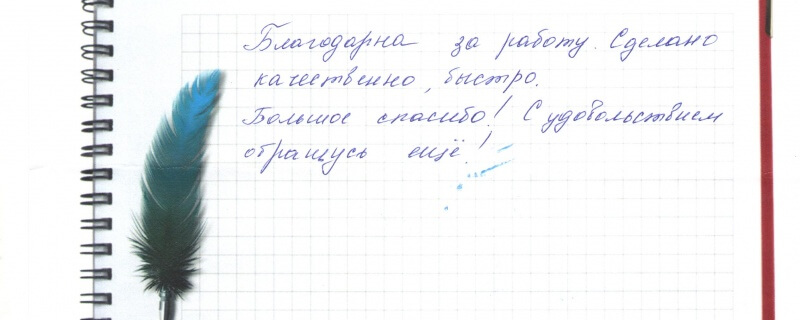 Благодарна за работу. Сделано
качественно, быстро.
Большое спасибо! С удовольствием
обращусь ещё!